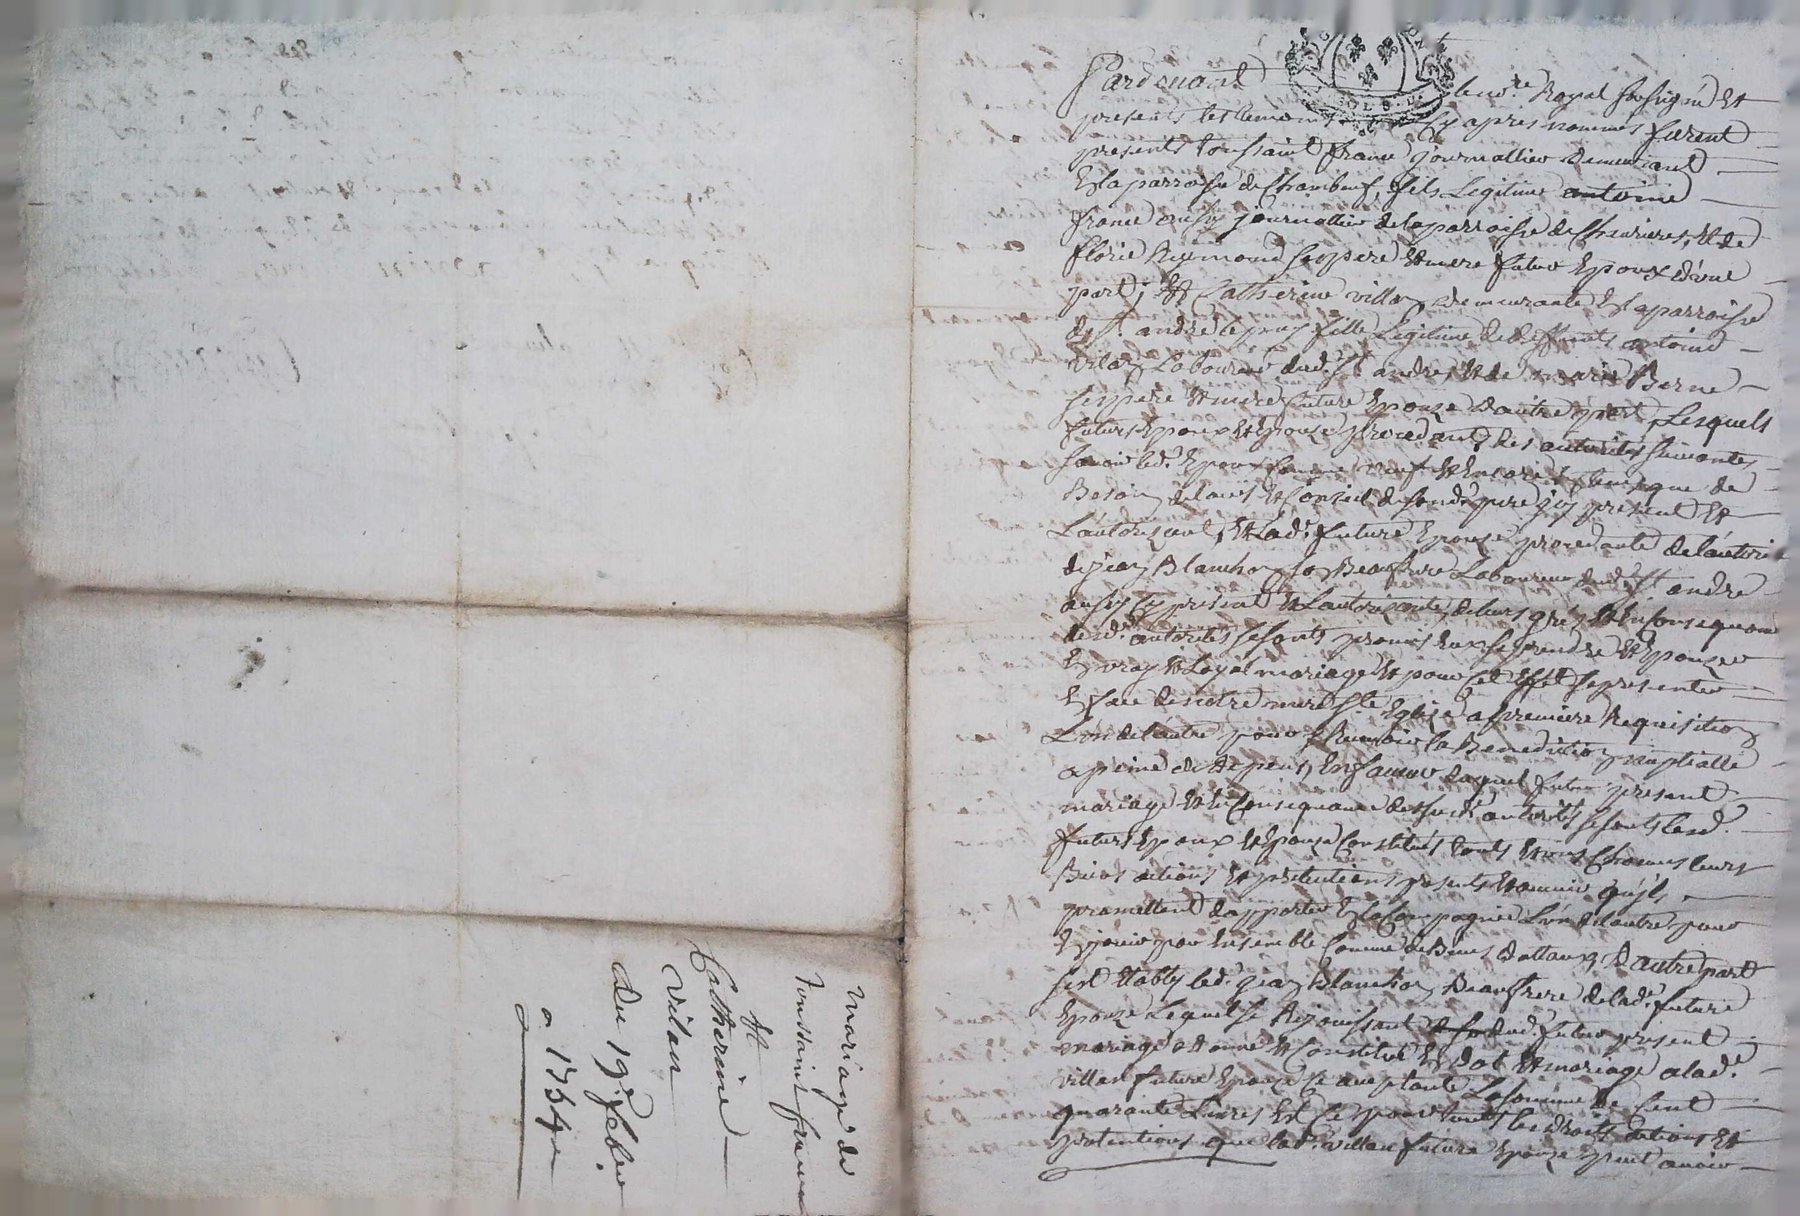 mariage de
toussaint france
Et
Catherine
vilan
du 19e feber
a 1764
Pardevant le nore Royal soussigné Et
presents les temoins Cy apres nommés furent
presents toussaint france journallier demeurant
En la parroisse de Chambeuf, fils Legitime antoine
france aussy journallier de la parroisse de Cheurieres, Et de
florie Reymond ses pere Et mere futur Epoux d'une
part; Et Catherine villan demeurante En la parroisse
de st andré le puy fille Legitime de deffunts antoine
vilan Laboureur dud. st andré, Et de marie Berne
ses pere Et mere future Epouze d'autre part, Lesquels
futurs Epoux Et Epouze procedant des autorités suivantes
savoir led. Epoux Comme Et Encore de
Besoin de lavis Et Conseil de sond. pere icy present Et
L'autorizant, Et lad. future Epouze procedante de l'autorité
de jean Blanchon son Beaufrere Laboureur dud. st andré
aussy Cy present Et Lautorizante, de leurs grés Et En Consequence
desd. autorités se sonts promis Eux se prendre Et Epouzer
En vray Et Loyal mariage Et pour Cet Effet se presenter
En face de notre mere ste Eglize a premiere Requisition
L'un de l'autre pour y Recevoir la Benediction nuptialle
a peine de depens, En faveur duquel futur present
mariage Et En Consequence desusd. autorités se sonts lesd.
futurs Epoux Et Epouze Constitués touts Et uns Chacuns leurs
Biens actions Et pretentions presents Et avenir qu'ils
promettent d'apporter En la Compagnie L'un de l'autre pour
En jouir par Ensemble Comme de Biens dottaux, D'autre part
s'est Etably led. jean Blanchon Beaufrere de lad. future
Epouze Lequel se Rejouissant dud. futur present
mariage a donné Et Constitué En dot Et mariage a lad.
villan future Epouze Ce acceptante La somme de Cent
quarante Livres Et Ce pour touts les droits actions Et
pretentions que lad. villan future Epouze peut avoir